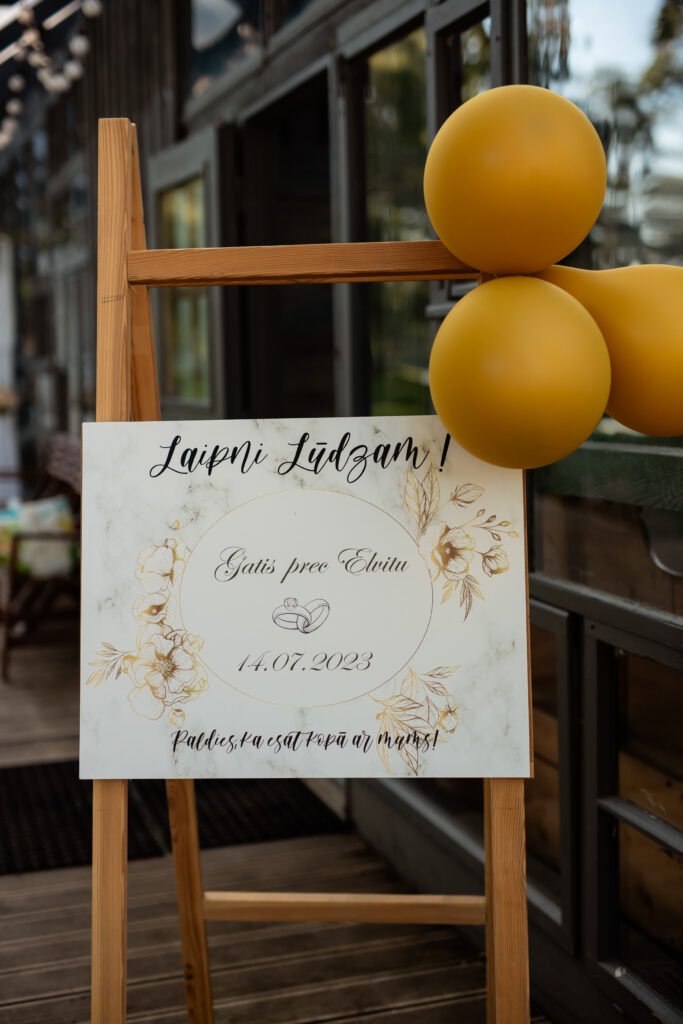 Laipni Lūdzam!
Gatis prec Elvitu
14.07.2023
Paldies, ka esat kopā ar mums!